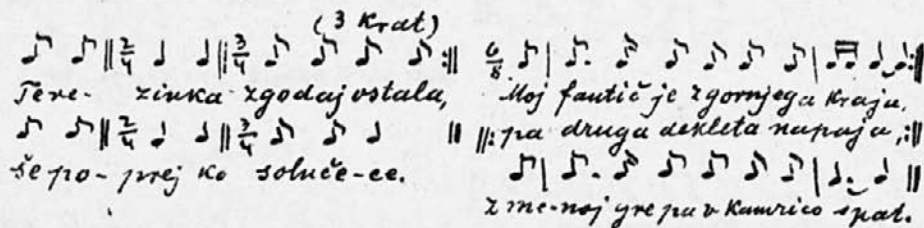 (3 krat)
Tere- zinka zgodaj vstala,
še po- prej ko solnče-ce.
Moj fantič je z gornjega kraja,
pa druga dekleta napaja,
z me-noj gre pa v kamrico spat.